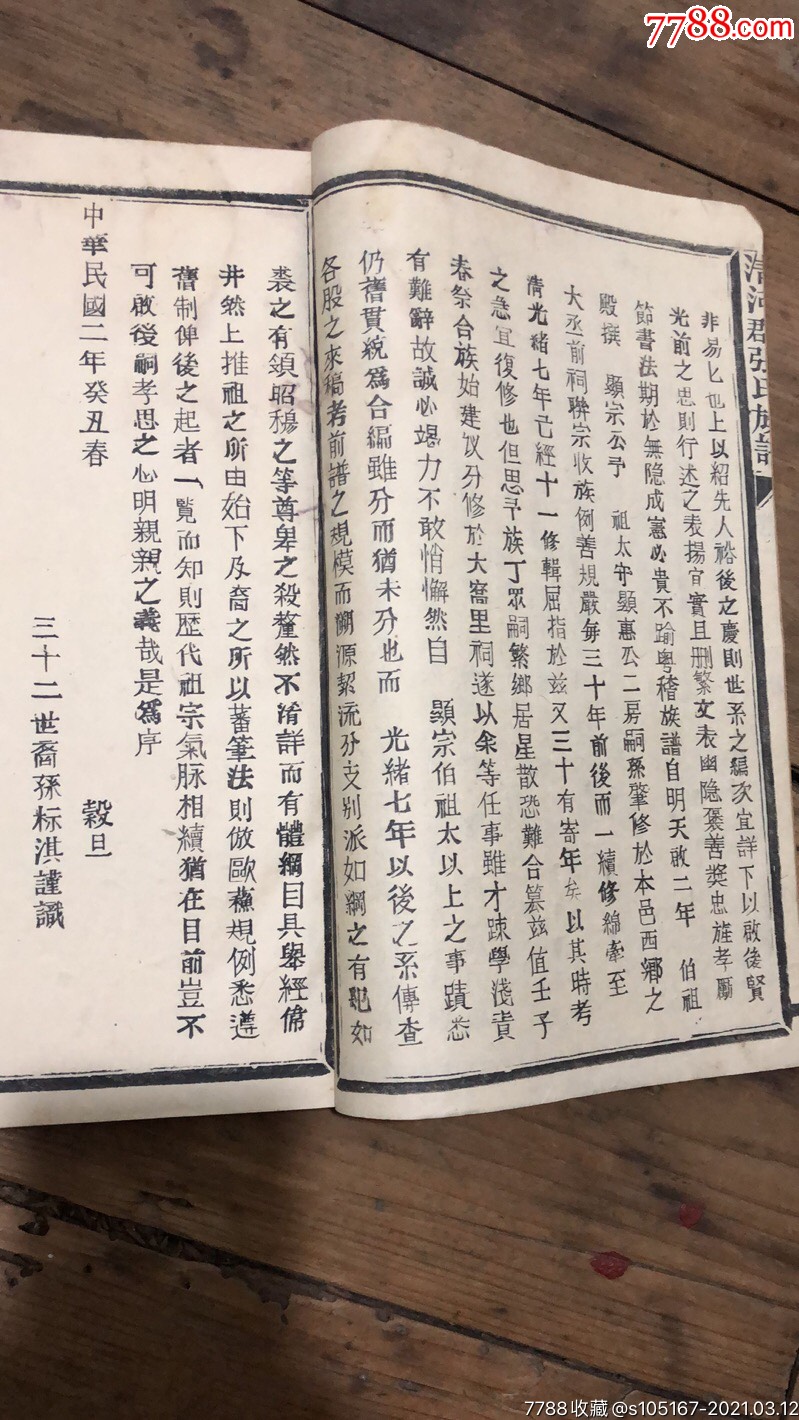 7788.com
清河郡張氏族譜
非易匕也上以紹先人裕後之慶則世系之編次宜詳下以啟後賢
光前之思則行述之表揚宜實且刪繁文表幽隐褒善奖忠旌孝勵
節書法期於無隐成憲必貴不踰粤稽族譜自明天啟二年 伯祖
殿撰 顯宗公予 祖太守顯惠公二房嗣孫肇修於本邑西鄉之
大丞前祠聨宗收族例善規嚴每三十年前後而一續修綿牽至
清光緒七年已經十一修輯屈指於兹又三十有寄年矣以其時考
之急宜復修也但思予族丁眾嗣繁鄉居星散恐難合纂兹值壬子
春祭合族始建议分修於大窩里祠遂以余等任事雖才踈學淺責
有難辭故誠必竭力不敢悄懈然自 顯宗伯祖太以上之事蹟悉
仍舊貫統為合編雖分而猶未分也而 光緒七年以後之系傳查
各股之來稿考前譜之規模而溯源絜流分支别派如綱之有䋄如
裘之有領昭穆之等尊卑之殺釐然不淆詳而有體綱目具舉經俻
井然上推祖之所由始下及裔之所以蕃筆法則倣歐蘓規例悉遵
舊制俾後之起者一覧而知則歷代祖宗氣脉相續猶在目前豈不
可啟後嗣孝思之心明親親之義哉是為序
中華民國二年癸丑春 穀旦
三十二世裔孫标淇謹識
7788收藏@s105167-2021.03.12